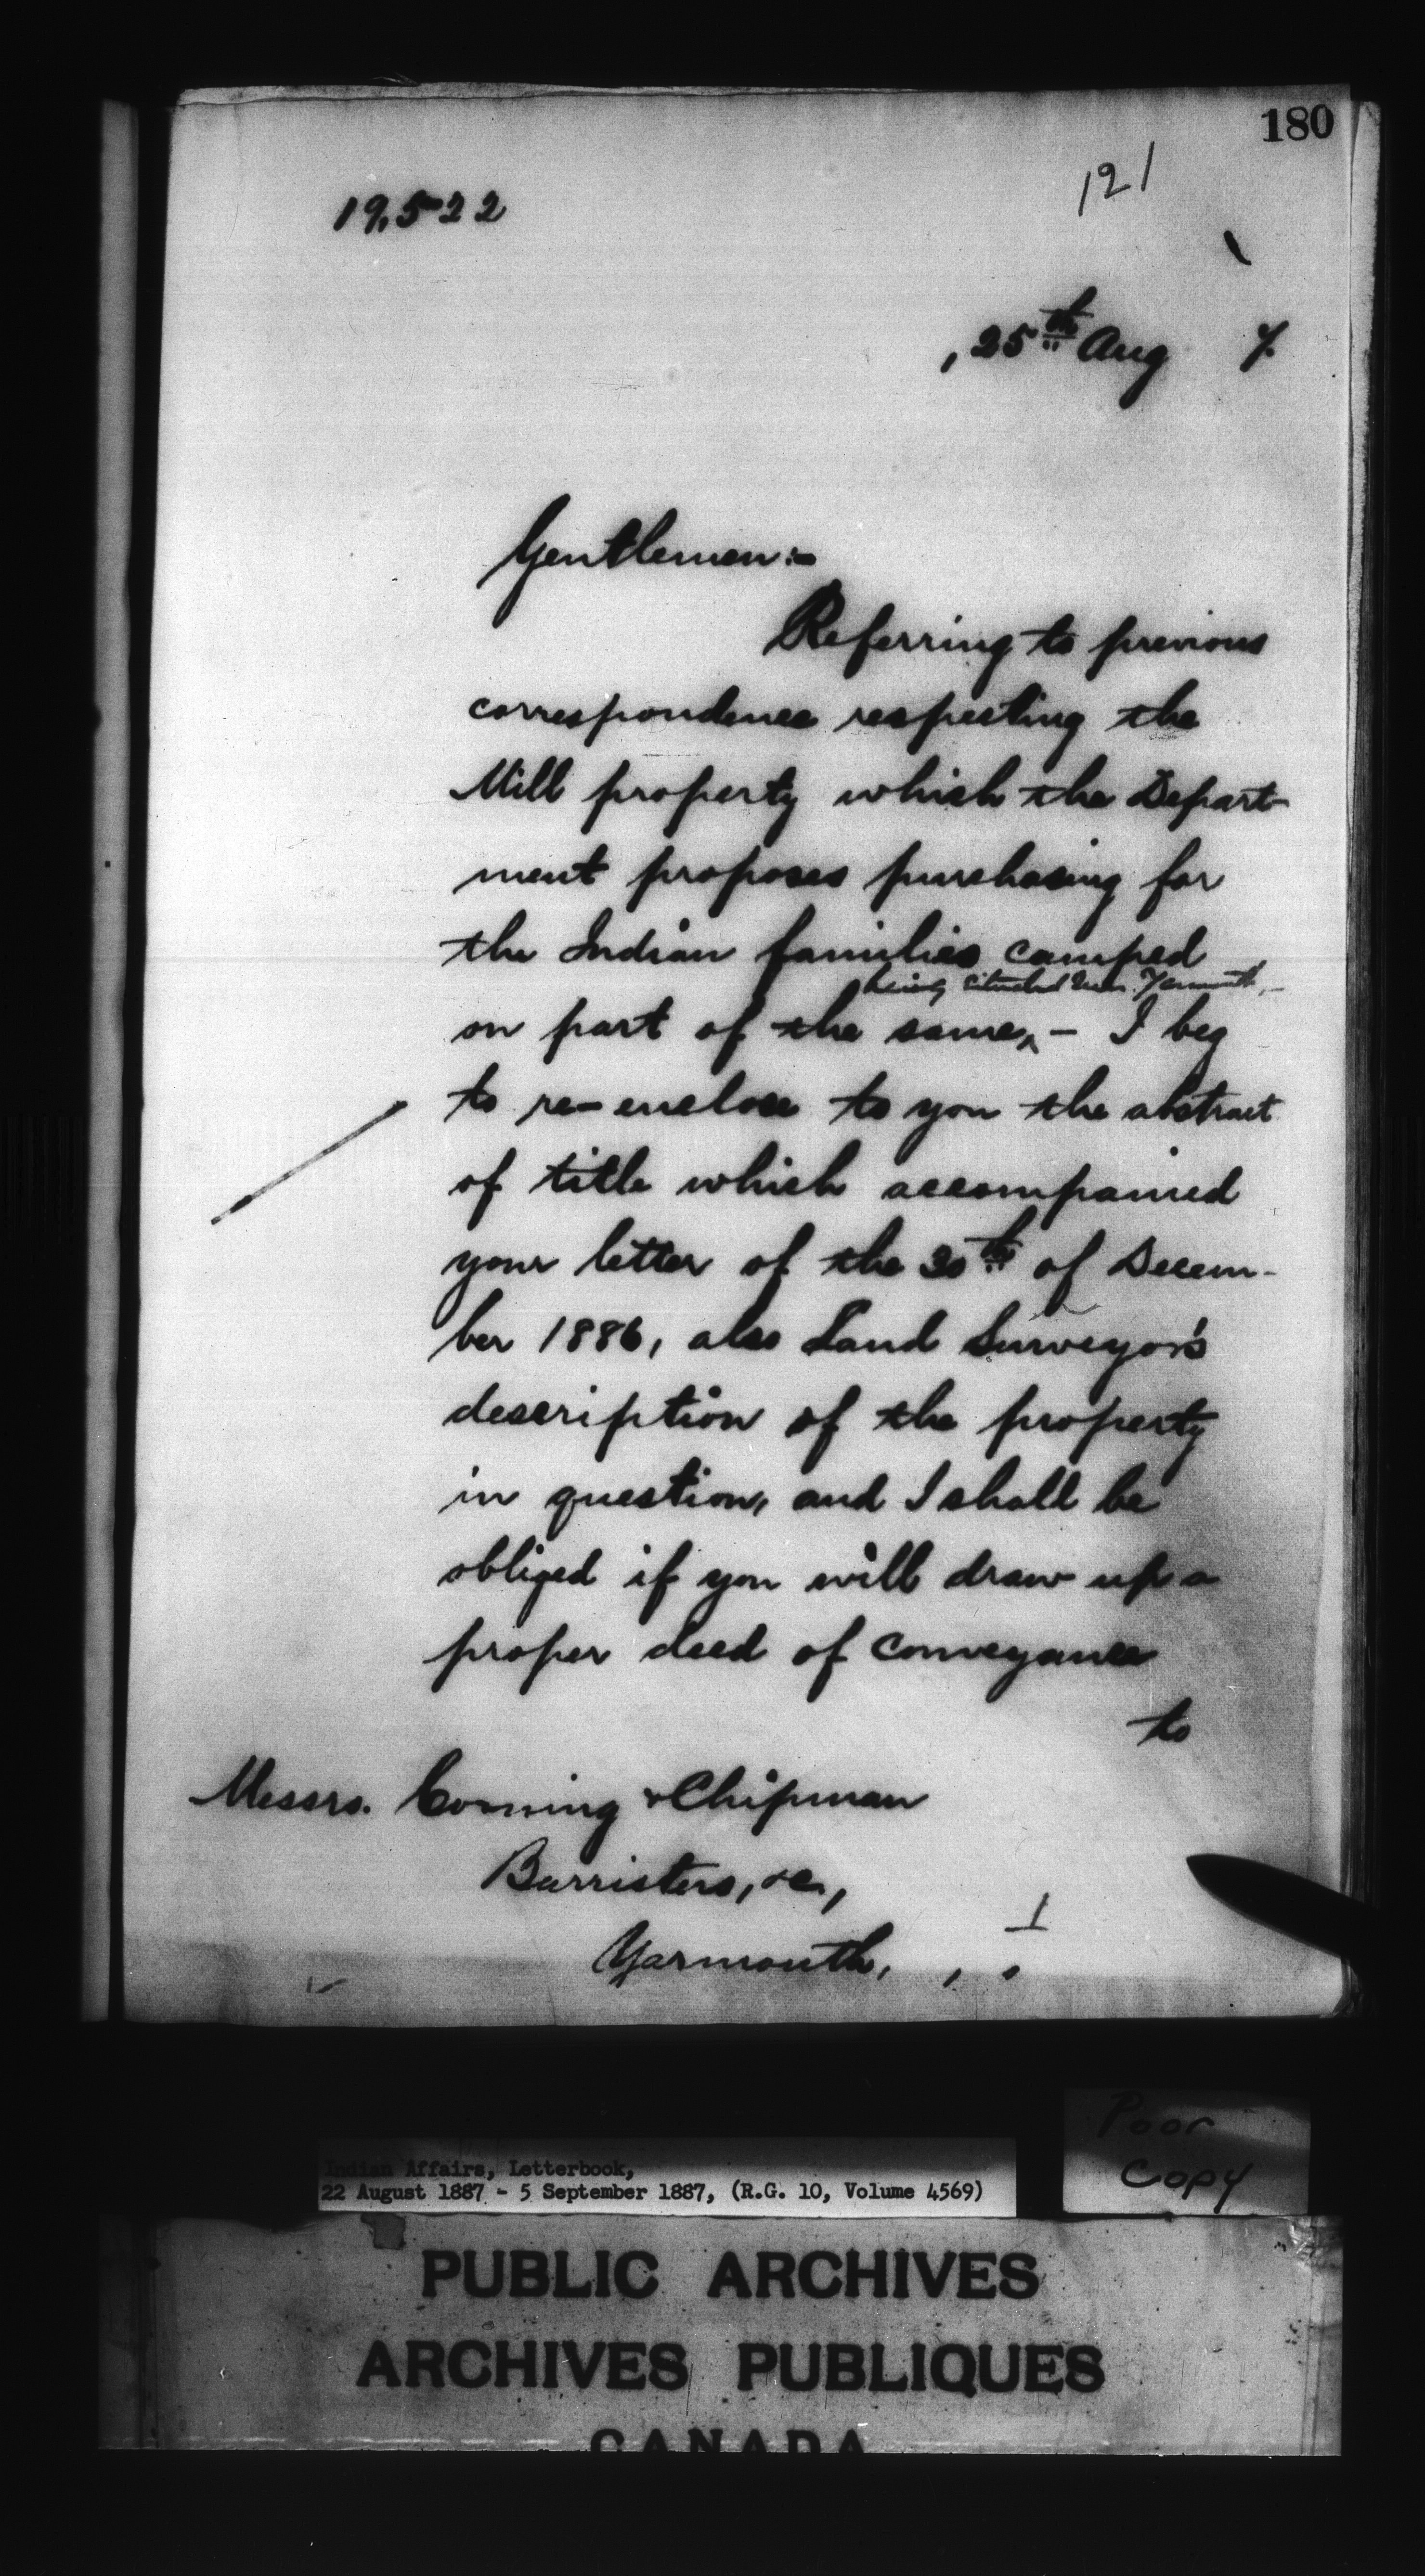 180
121
19,522
, 25th Aug 7.
Gentlemen:-
Referring to previous
correspondence respecting the
Mill property which the Depart-
ment proposes purchasing for
the Indian families camped
being situated near Yarmouth,-
on part of the same,^ - I beg
to re-enclose to you the abstract
of title which accompanied
your letter of the 30th of Decem-
ber 1886, also Land Surveyor's
description of the property
in question, and I shall be
obliged if you will draw up a
proper deed of conveyance
to
Messrs. Corning & Chipman
Barristers, &c.,
Yarmouth,
Poor
Copy
Indian Affairs, Letterbook,
22 August 1887 - 5 September 1887, (R.G. 10, Volume 4569)
PUBLIC ARCHIVES
ARCHIVES PUBLIQUES
CANADA